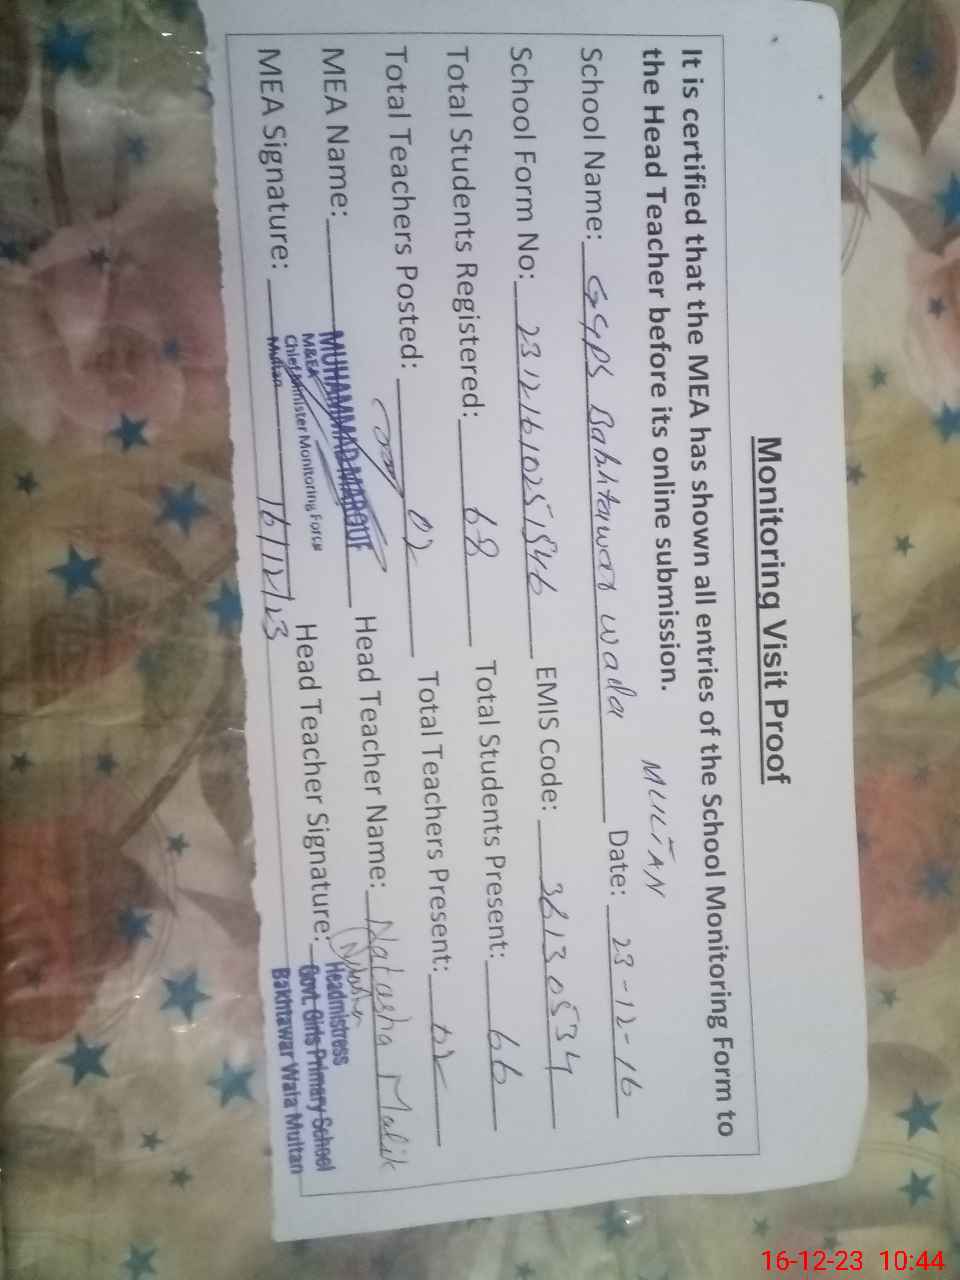 Monitoring Visit Proof
It is certified that the MEA has shown all entries of the School Monitoring Form to
the Head Teacher before its online submission.
MULTAN
School Name: GGPS Bakhtawar Wada Date: 23-12-16
School Form No: 23121610251546 EMIS Code: 36130534
Total Students Registered: 68 Total Students Present: 66
Total Teachers Posted: 02 Total Teachers Present: 02
MEA Name: MUHAMMAD MAROOF Head Teacher Name: Natasha Malik
M&EA
Chief Minister Monitoring Force
Multan
MEA Signature: 16/12/23 Head Teacher Signature: Natasha
Headmistress
Govt. Girls Primary School
Bakhtawar Wala Multan
16-12-23 10:44